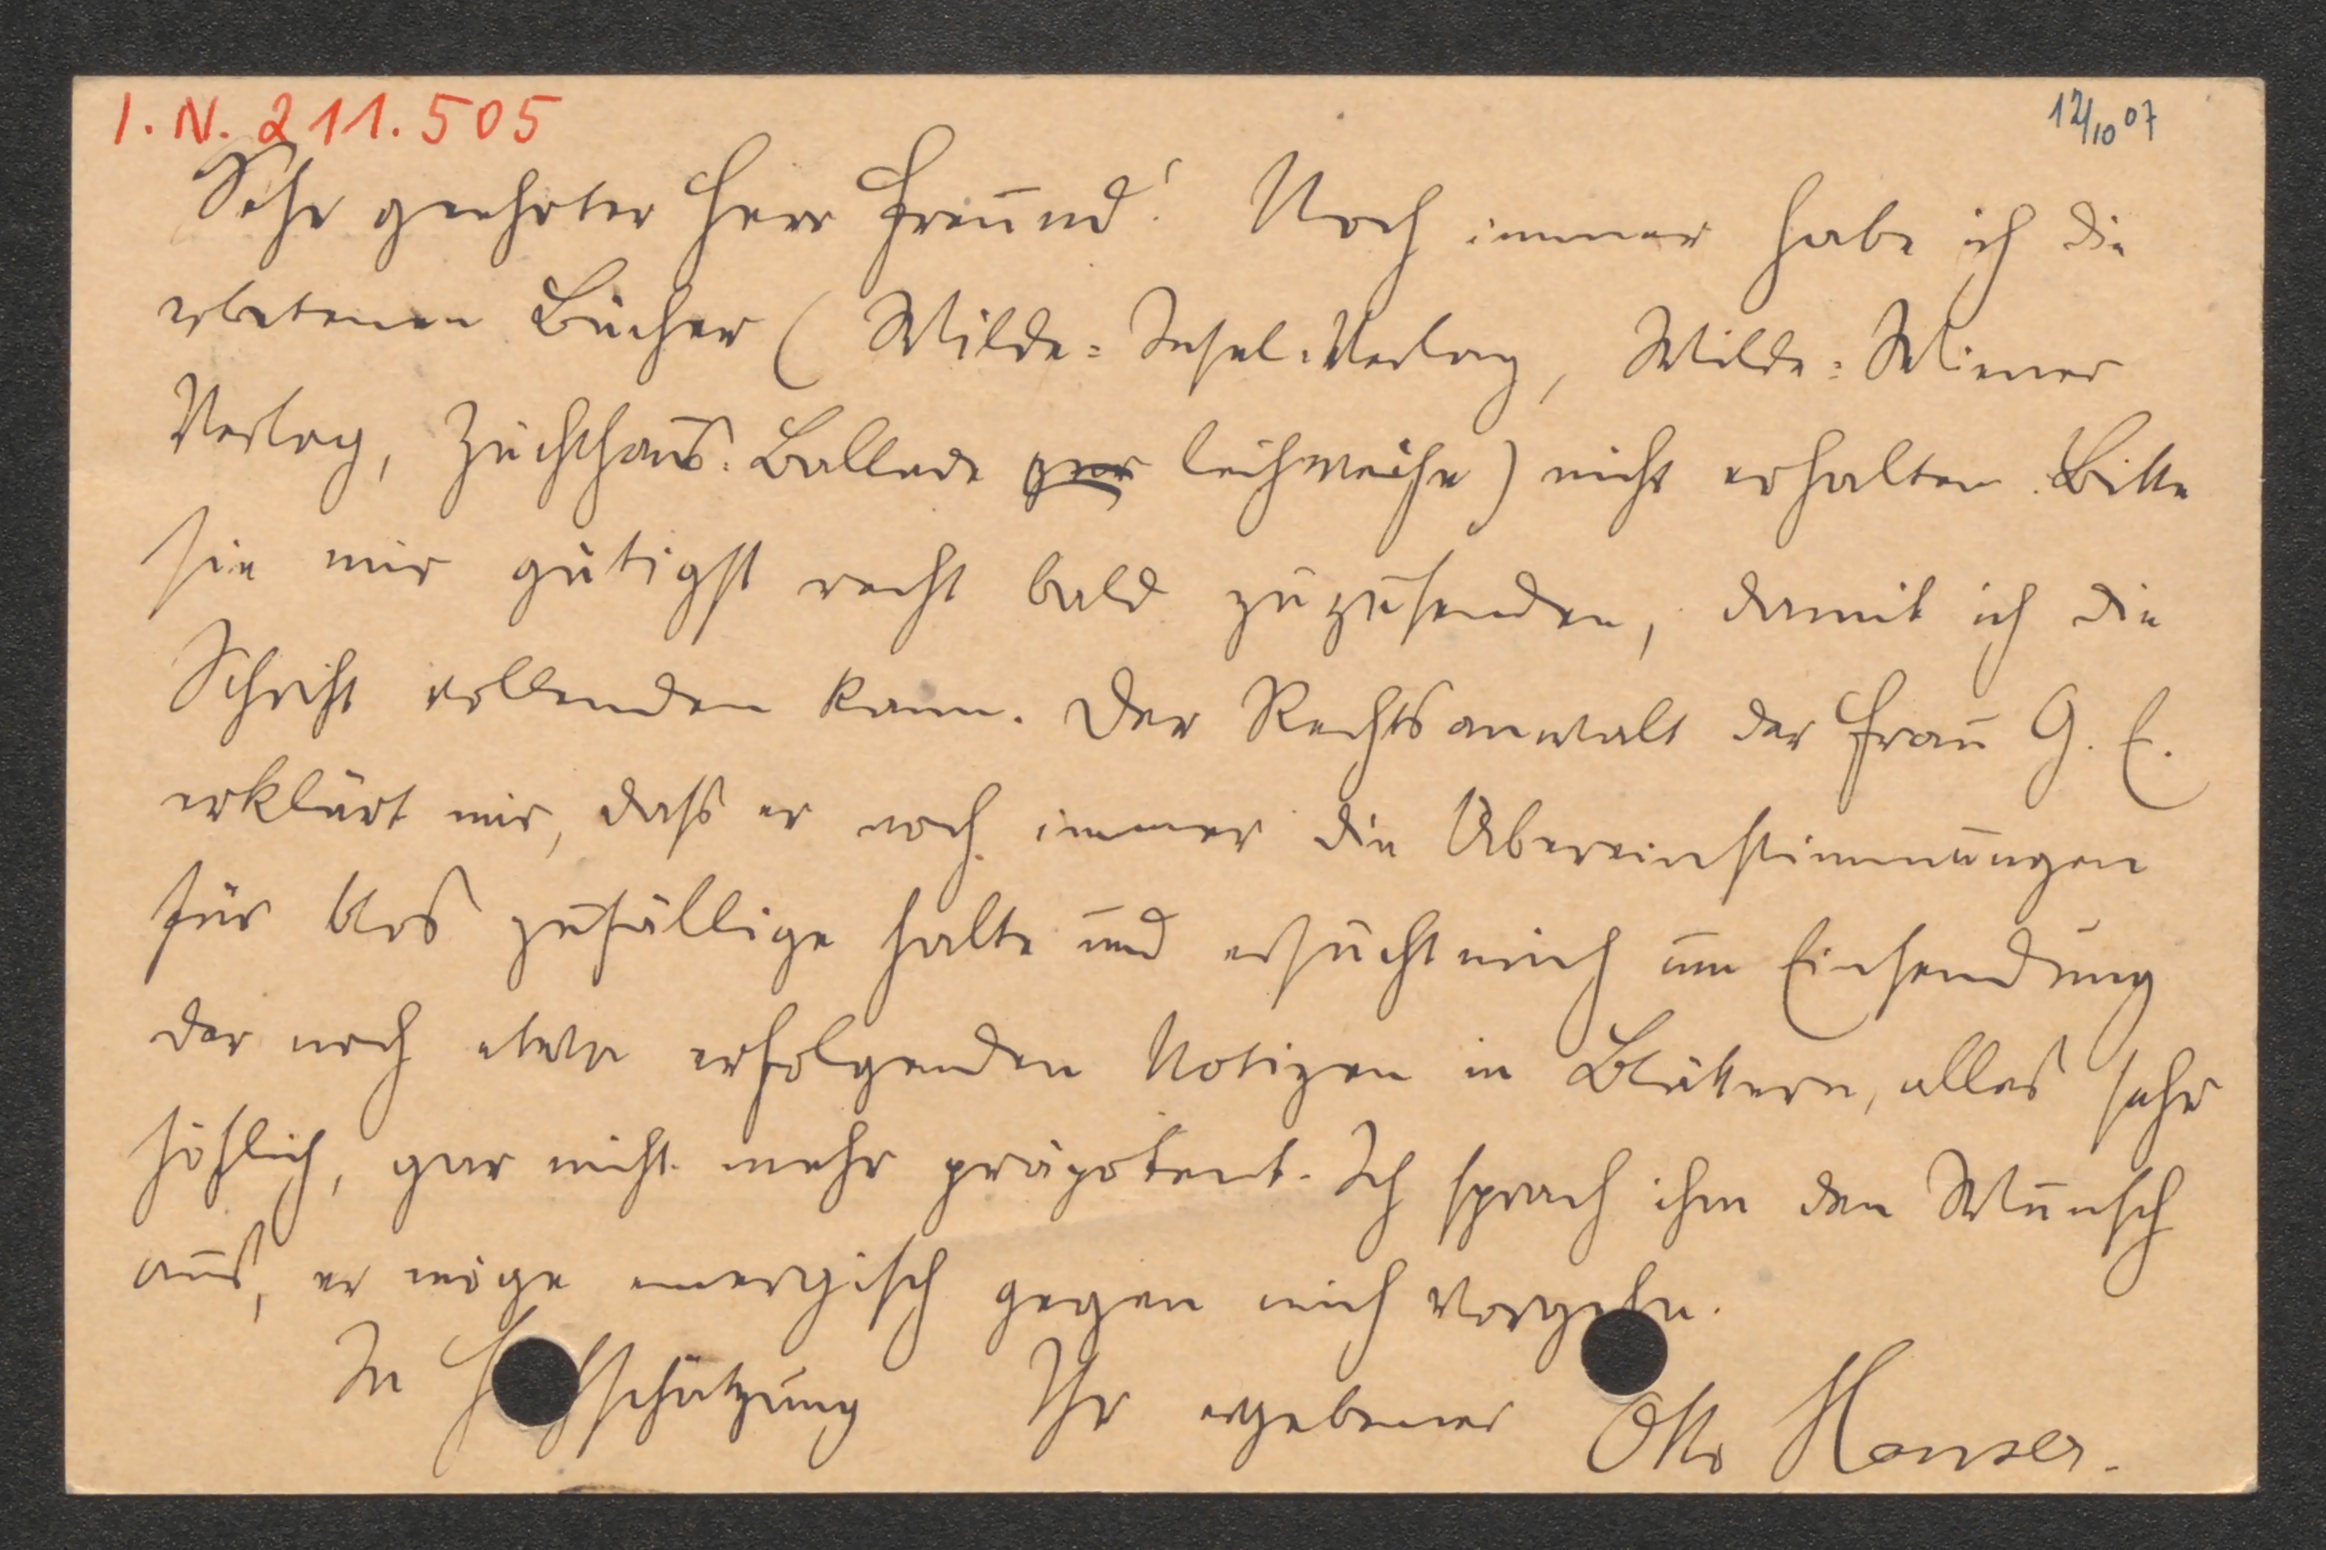 I.N. 211.505
12/10 07
Sehr geehrter Herr Freund! Noch immer habe ich die
erbetenen Bücher (Wilde-Insel-Verlag, Wilde-Wiener
Verlag, Zuchthaus-Ballade leihweise) nicht erhalten. Bitte
sie mir gütigst recht bald zuzusenden, damit ich die
Schrift vollenden kann. Der Rechtsanwalt der Frau G. E.
erklärt mir, dass er noch immer die Übereinstimmungen
für blos zufällige halte und ersucht mich um Einsendung
der noch etwa erfolgenden Notizen in Blättern, alles sehr
höflich, gar nicht mehr präpotent. Ich sprach ihm den Wunsch
aus, er möge energisch gegen mich vorgehn.
In Hochschätzung Ihr ergebener Otto Hauser.